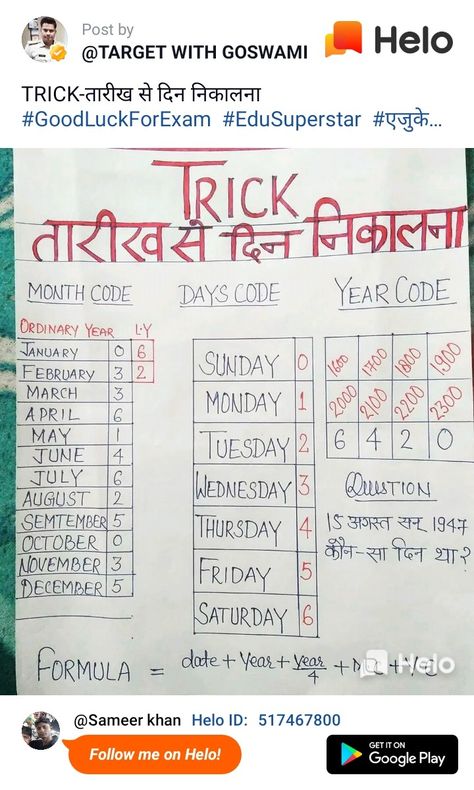 Post by
@TARGET WITH GOSWAMI
Helo
TRICK-तारीख से दिन निकालना
#GoodLuckForExam #EduSuperstar #एजुके...
TRICK
तारीख से दिन निकालना
MONTH CODE
ORDINARY YEAR L.Y
JANUARY 0 6
FEBRUARY 3 2
MARCH 3
APRIL 6
MAY 1
JUNE 4
JULY 6
AUGUST 2
SEMTEMBER 5
OCTOBER 0
NOVEMBER 3
DECEMBER 5
DAYS CODE
SUNDAY 0
MONDAY 1
TUESDAY 2
WEDNESDAY 3
THURSDAY 4
FRIDAY 5
SATURDAY 6
YEAR CODE
1600 1700 1800 1900
2000 2100 2200 2300
6 4 2 0
QUESTION
15 अगस्त सन् 1947
कौन-सा दिन था?
FORMULA = date + Year + Year/4 +
Helo
@Sameer khan Helo ID: 517467800
Follow me on Helo!
GET IT ON
Google Play